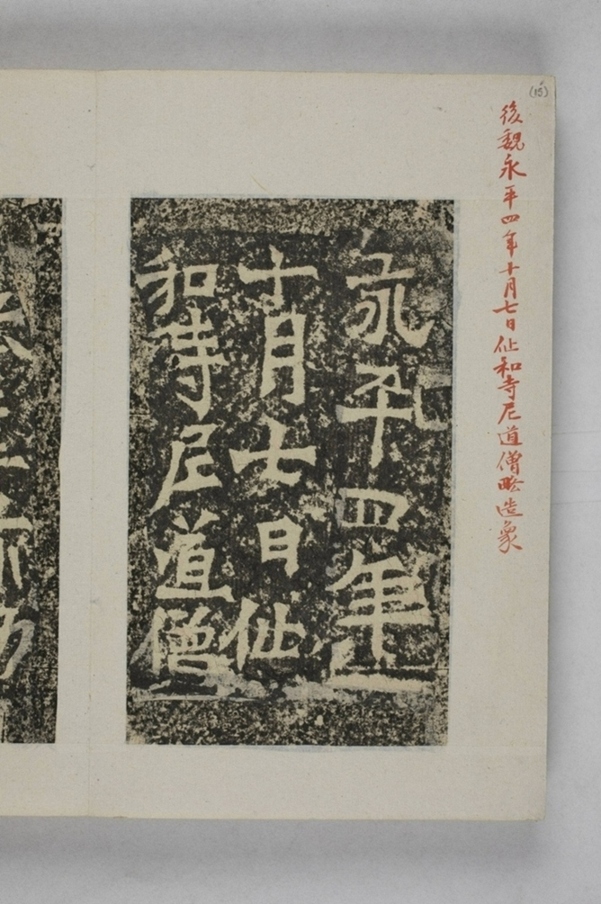 (15)
後魏永平四年十月七日仙和寺尼道僧略造象
永平四年
十月七日仙
和寺尼道僧